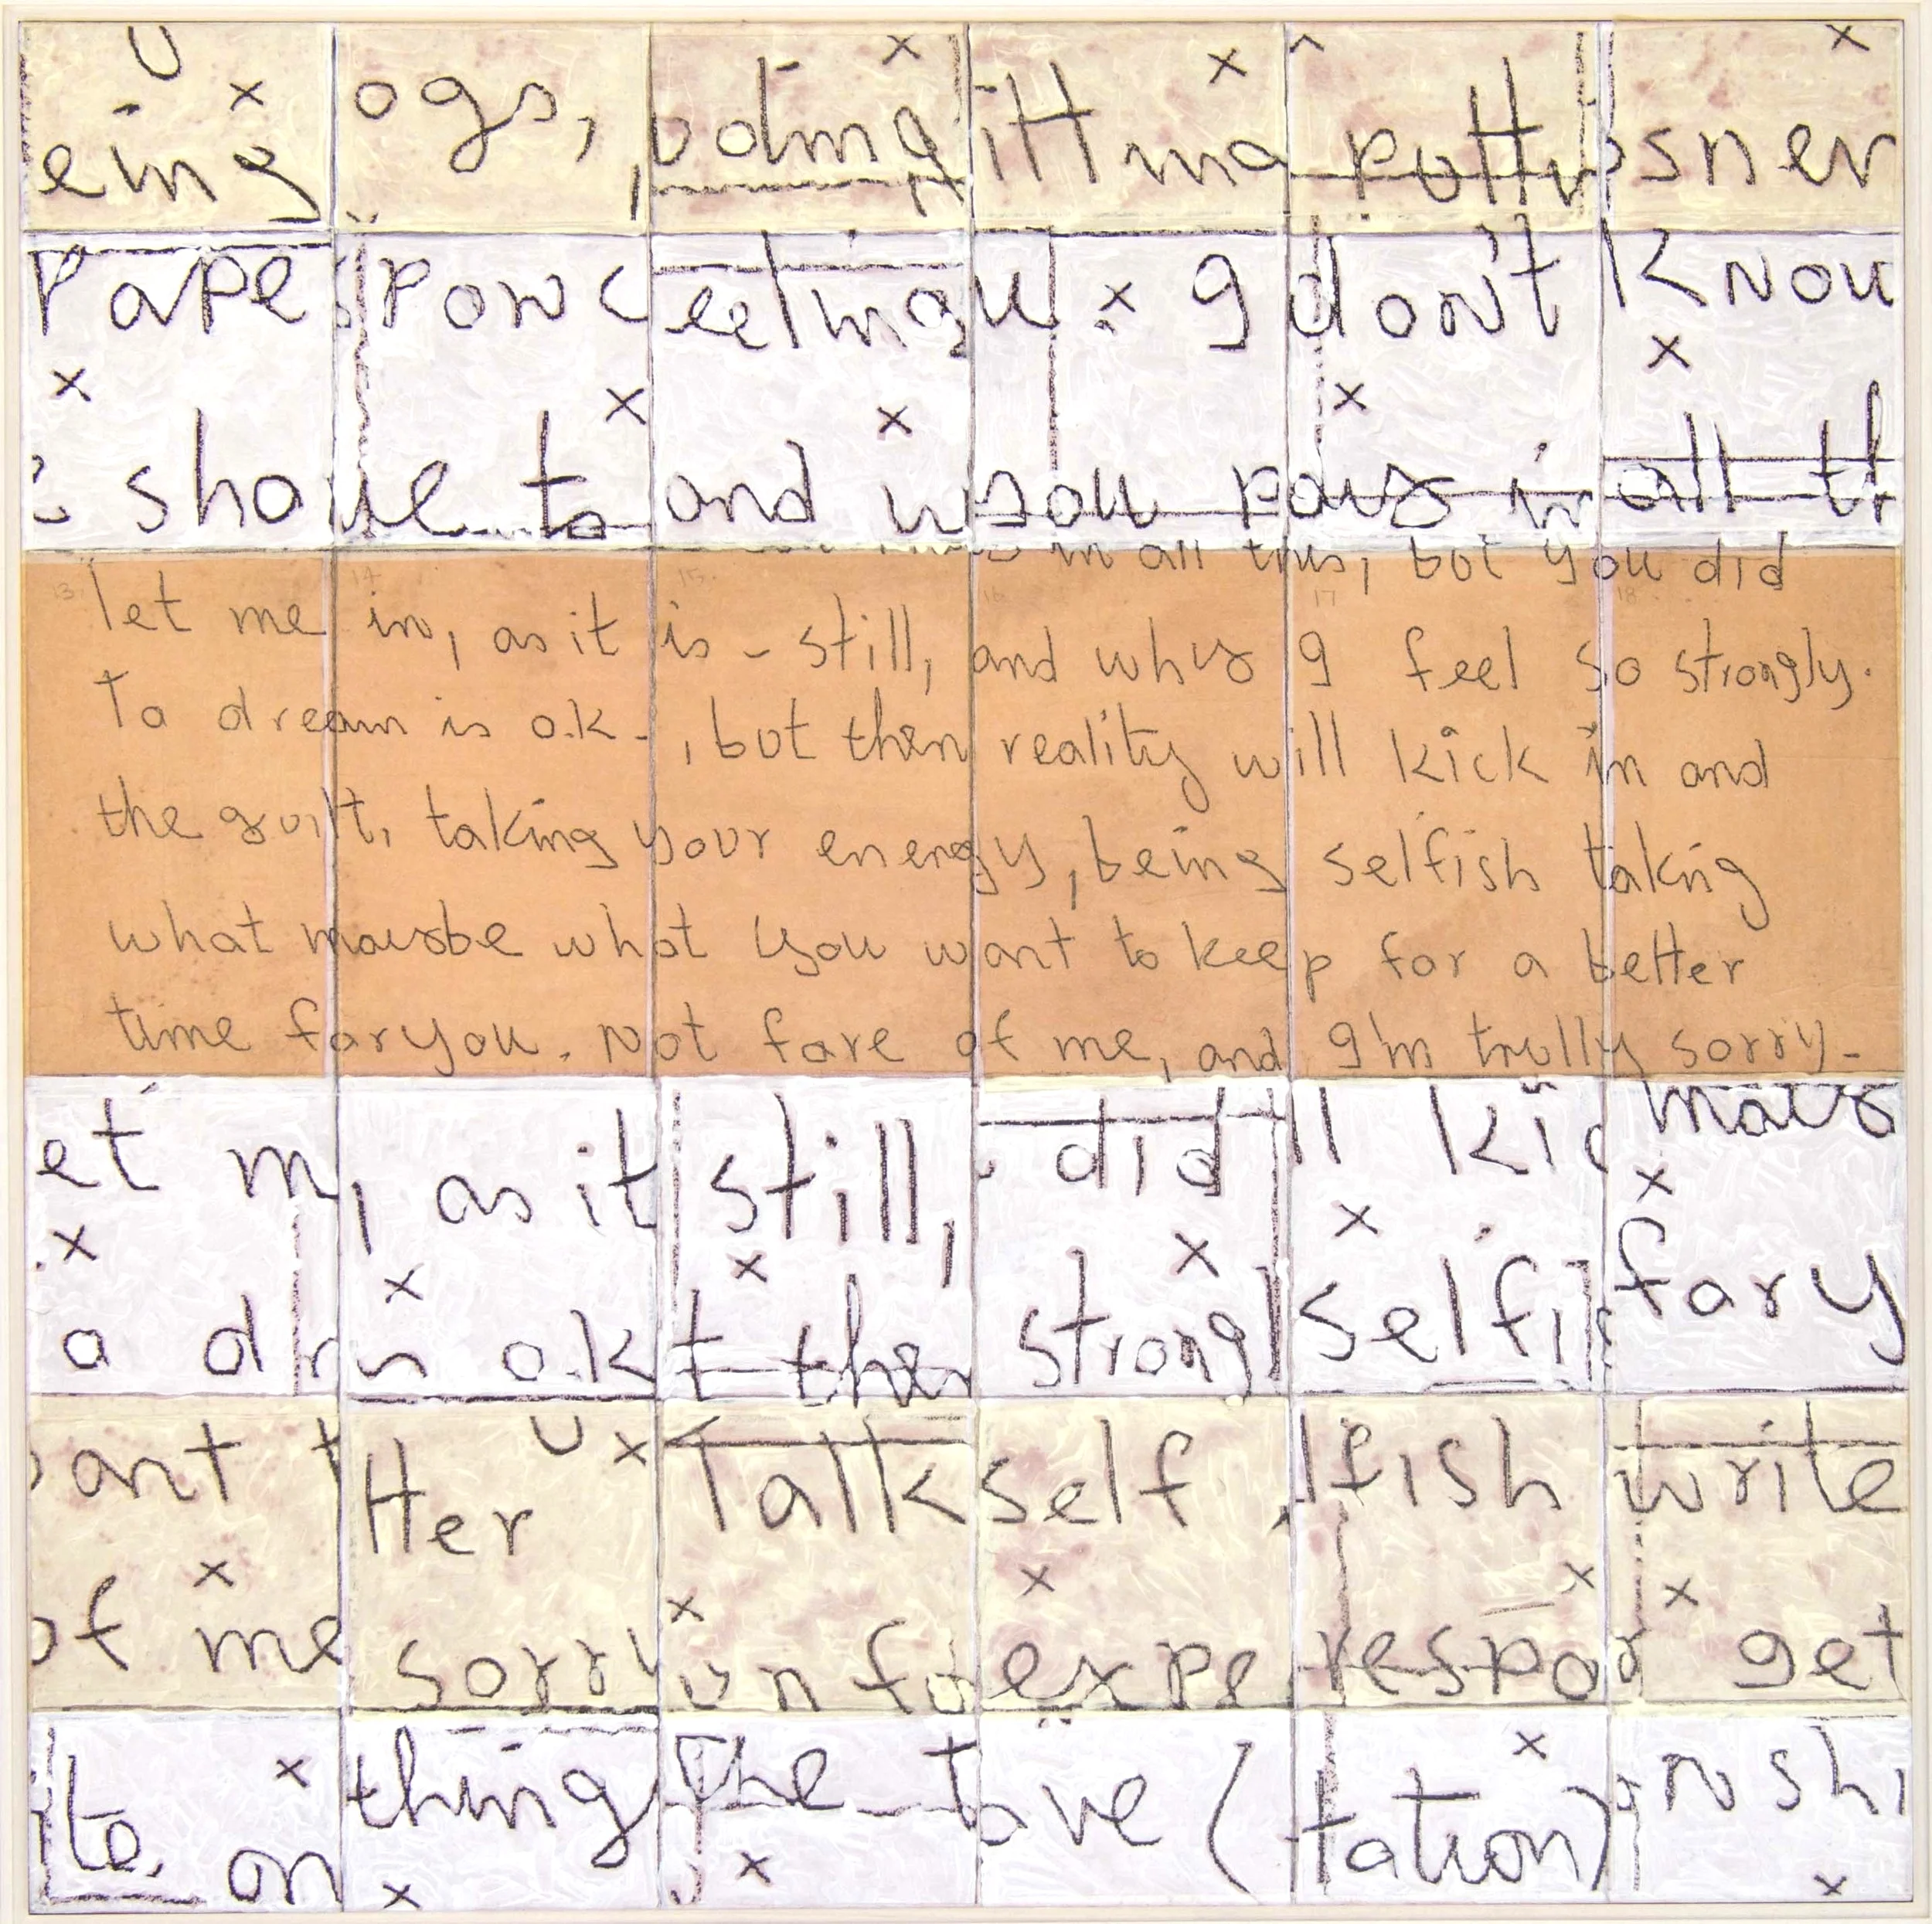 eing ogs, oding itt ma potty sner
Pape Pow eeling u . 9 don't Know
sho ue to and w you pays in all th
in all this, but you did
13. 14 15. 16 17 18.
let me in, as it is - still, and why I feel so strongly.
To dream is o.k-, but then reality will kick in and
the guilt, taking your energy, being selfish taking
what maybe what you want to keep for a better
time for you. Not fare of me, and I'm trully sorry-
et m , as it still, did ll kic mays
a d n o.k t then strongl selfis for y
ant t tter Talk self . lfish write
of me sorry un fo expe respo get
ito, on thing The t ove ( tation) n shi